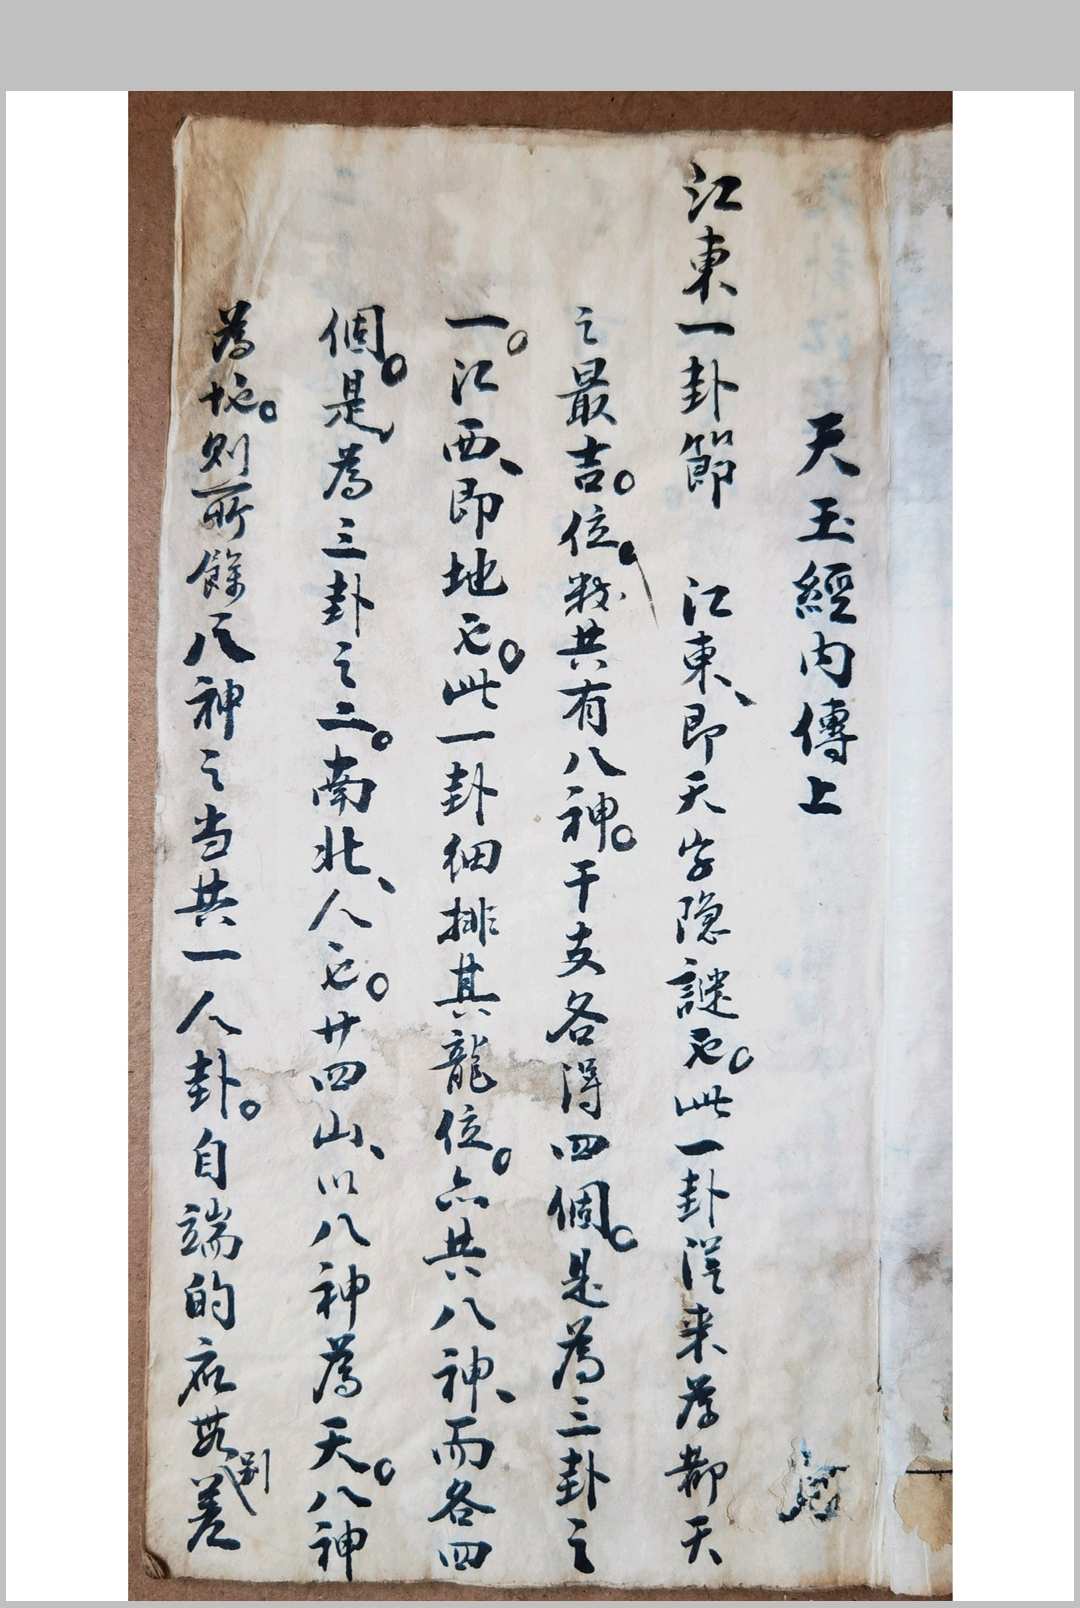 天玉經內傳上
江東一卦節　江東、即天字隐謎也。此一卦從来為都天
之最吉。位。数共有八神。干支各得四個。是為三卦之
一。江西、即地也。此一卦细排其龍位。亦共八神、而各四
個。是為三卦之二。南北、人也。廿四山、以八神為天。八神
為地。则所餘八神之当共一人卦。自端的应無别差